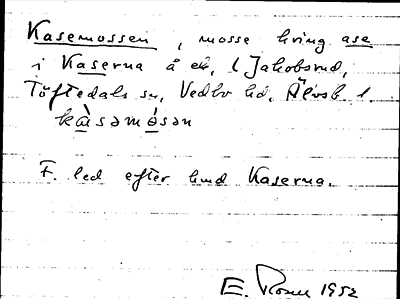 Kasemossen, mosse kring ase
i Kaserna å ek, l Jakobsrud,
Töftedals sn, Vedbo hd, Älvsb l.
kàsəmósən
F. led efter hmd Kaserna.
E. 1952